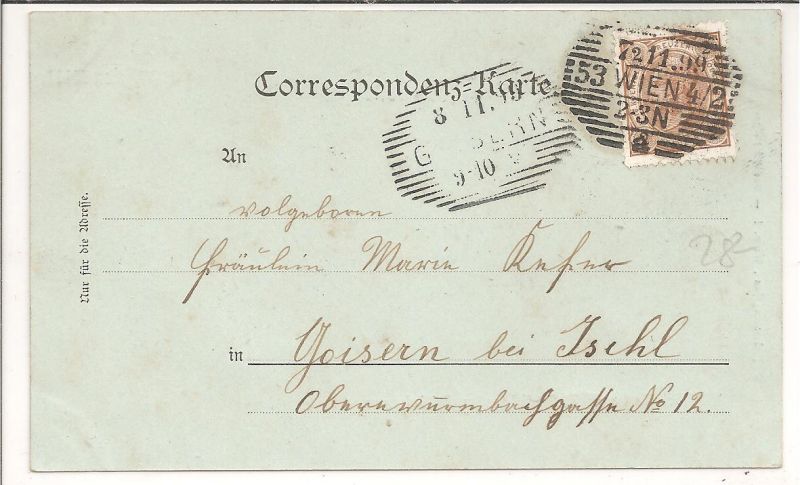 7 11.99
53 WIEN 4/2
2-3N
Correspondenz-Karte
8 11.
9-10
An
Nur für die Adresse.
Wolgeboren
Fräulein Marie Kefer
28
in Goisern bei Ischl
Oberewurmbachgasse No 12.